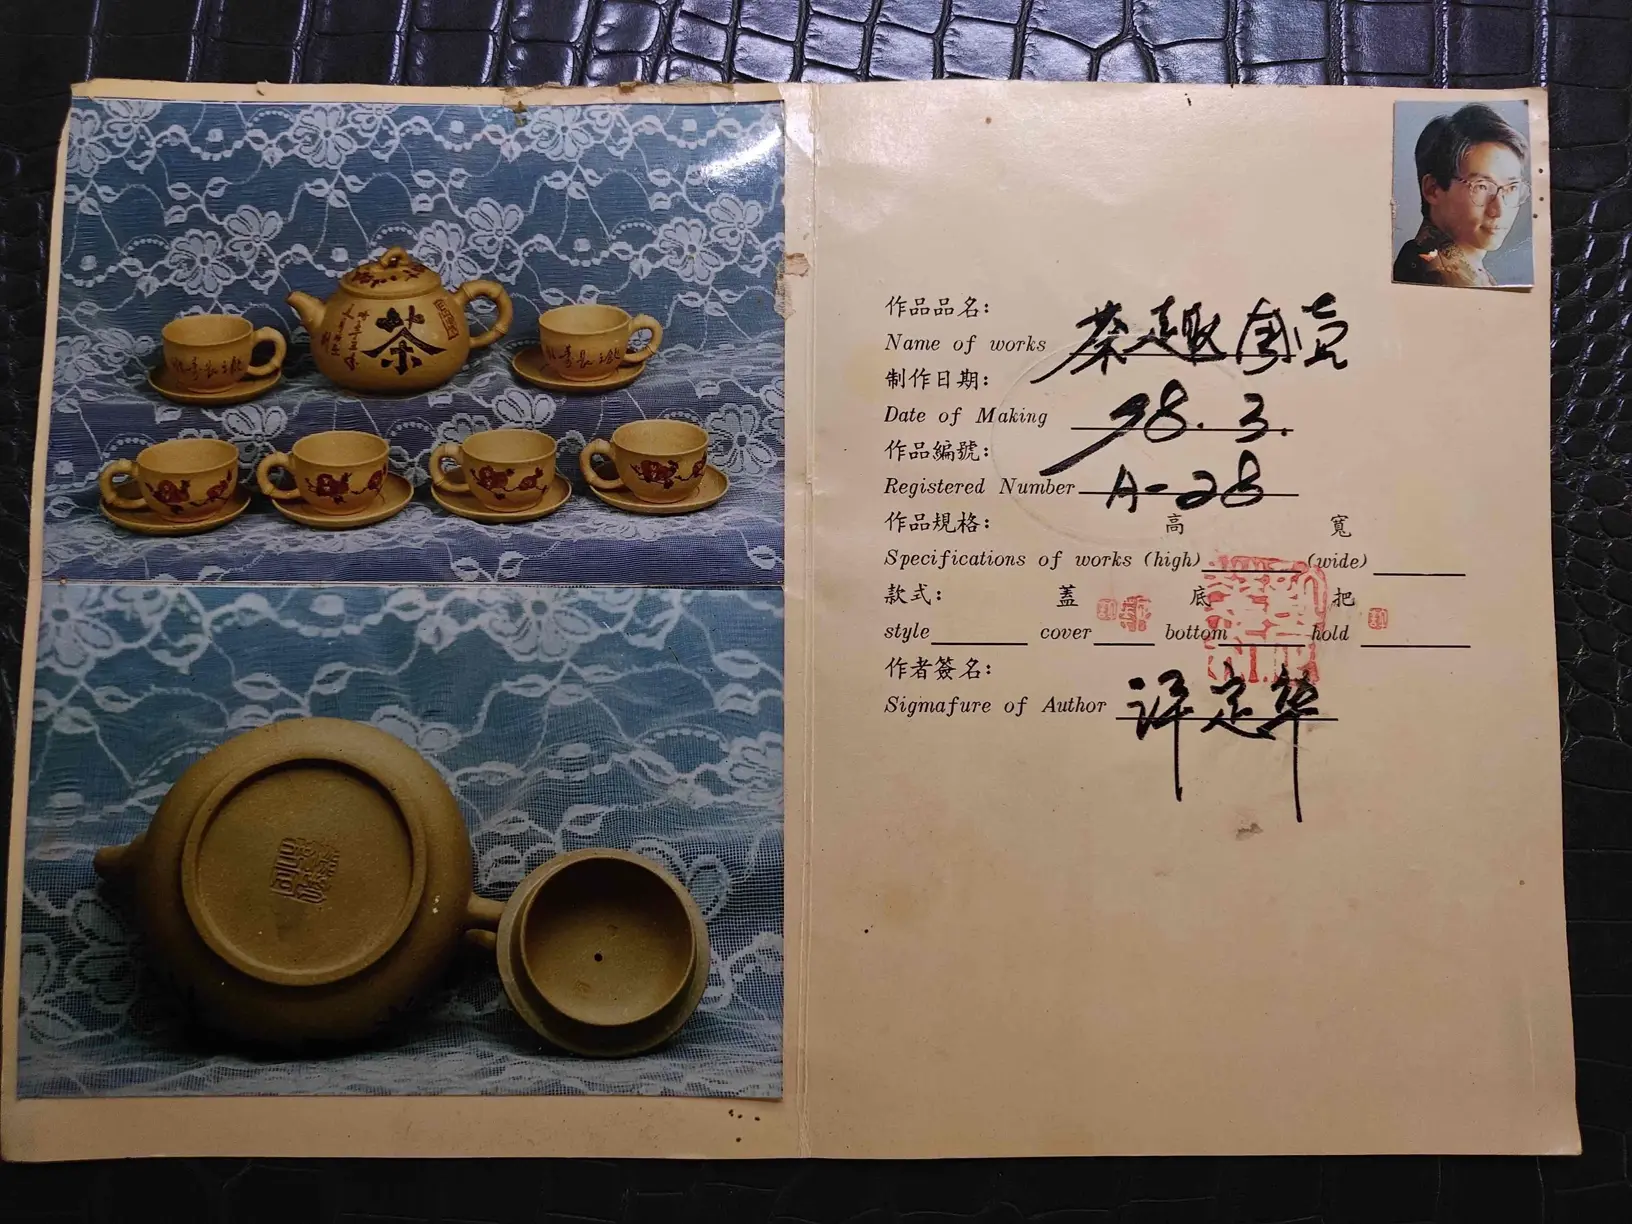 茶
作品品名：
Name of works 茶趣
制作日期：
Date of Making 98.3.
作品編號：
Registered Number A-28
作品規格： 高 寬
Specifications of works (high) (wide)
款式： 蓋 底 把
style cover bottom hold
作者簽名：
Sigmafure of Author 定华